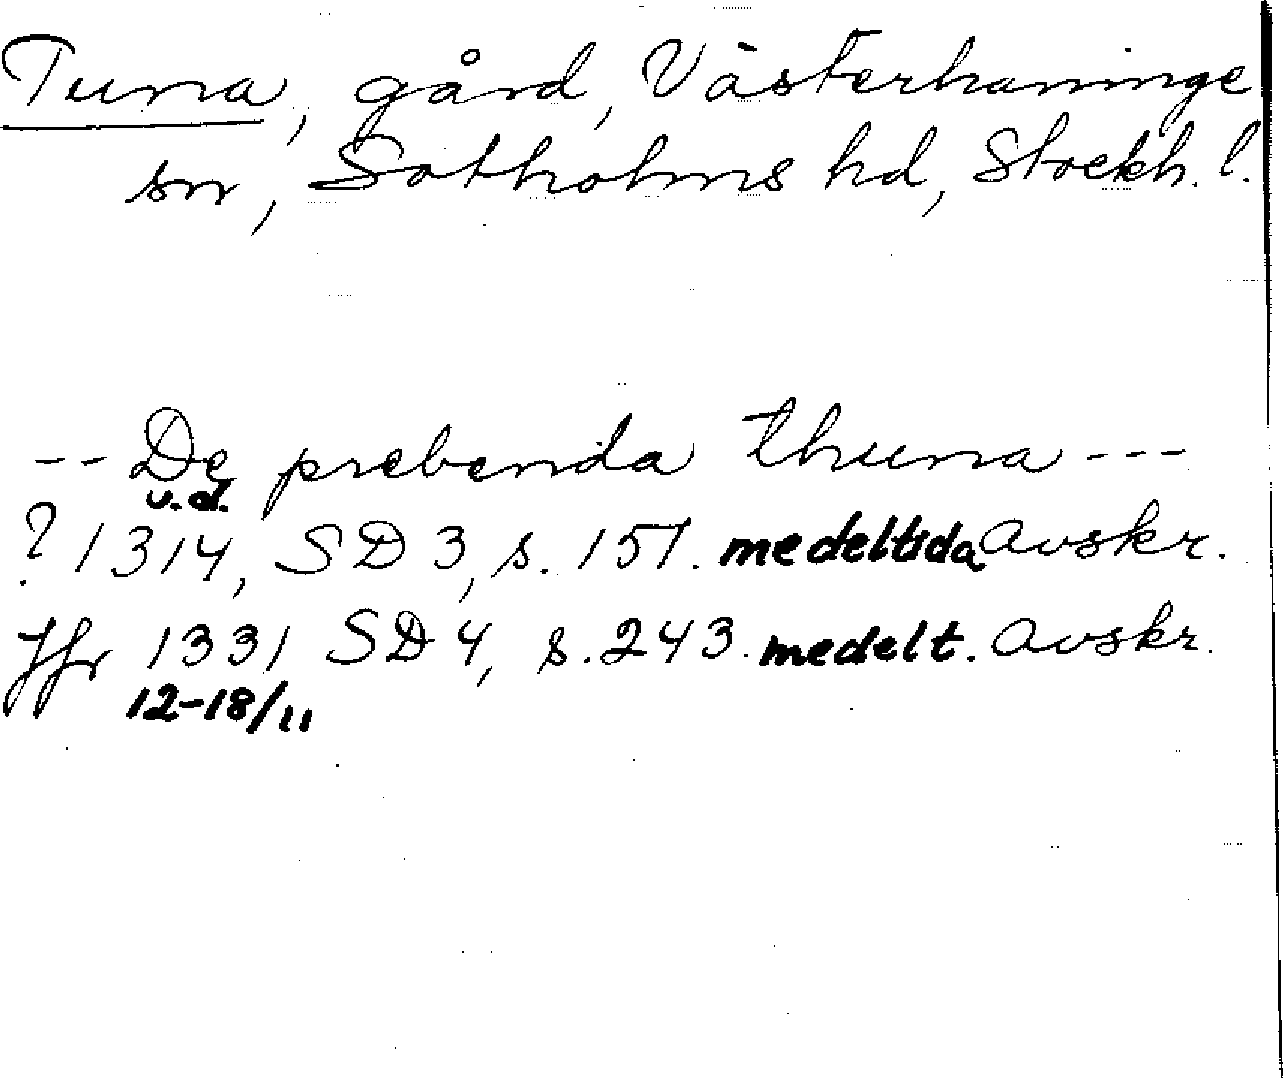 Tuna, gård, Västerhaninge
sn, Sotholms hd, Stockh. l.
-- De prebenda thuna ---
u.d.
? 1314, SD 3, s. 151. medeltida avskr.
Jfr 1331 SD 4, s. 243. medelt. avskr.
12-18/11